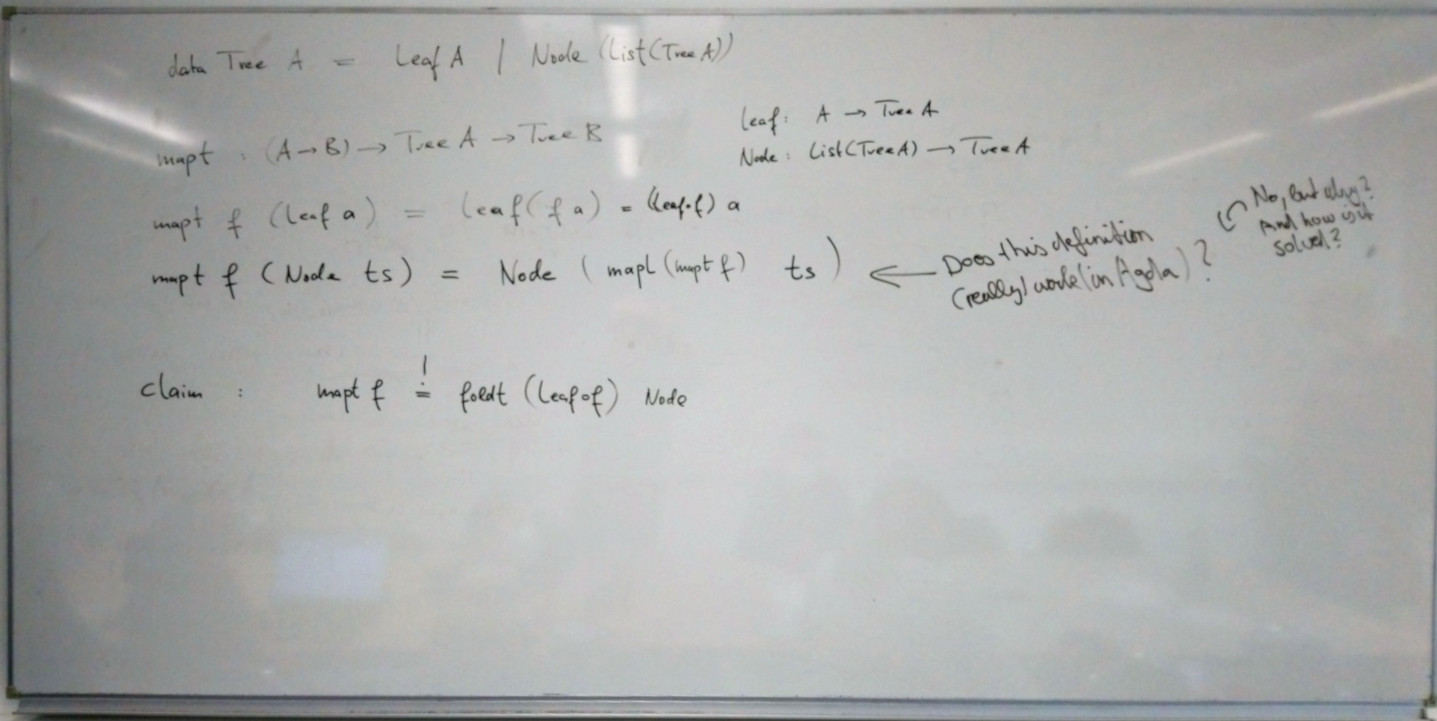 data Tree A = Leaf A | Node (List(Tree A))
mapt : (A → B) → Tree A → Tree B
Leaf : A → Tree A
Node : List(Tree A) → Tree A
mapt f (Leaf a) = Leaf (f a) = (Leaf∘f) a
mapt f (Node ts) = Node ( mapl (mapt f) ts )
← Does this definition
(really) work (in Agda) ?
No, but why?
And how is it
solved?
Claim : mapt f =! foldt (Leaf∘f) Node